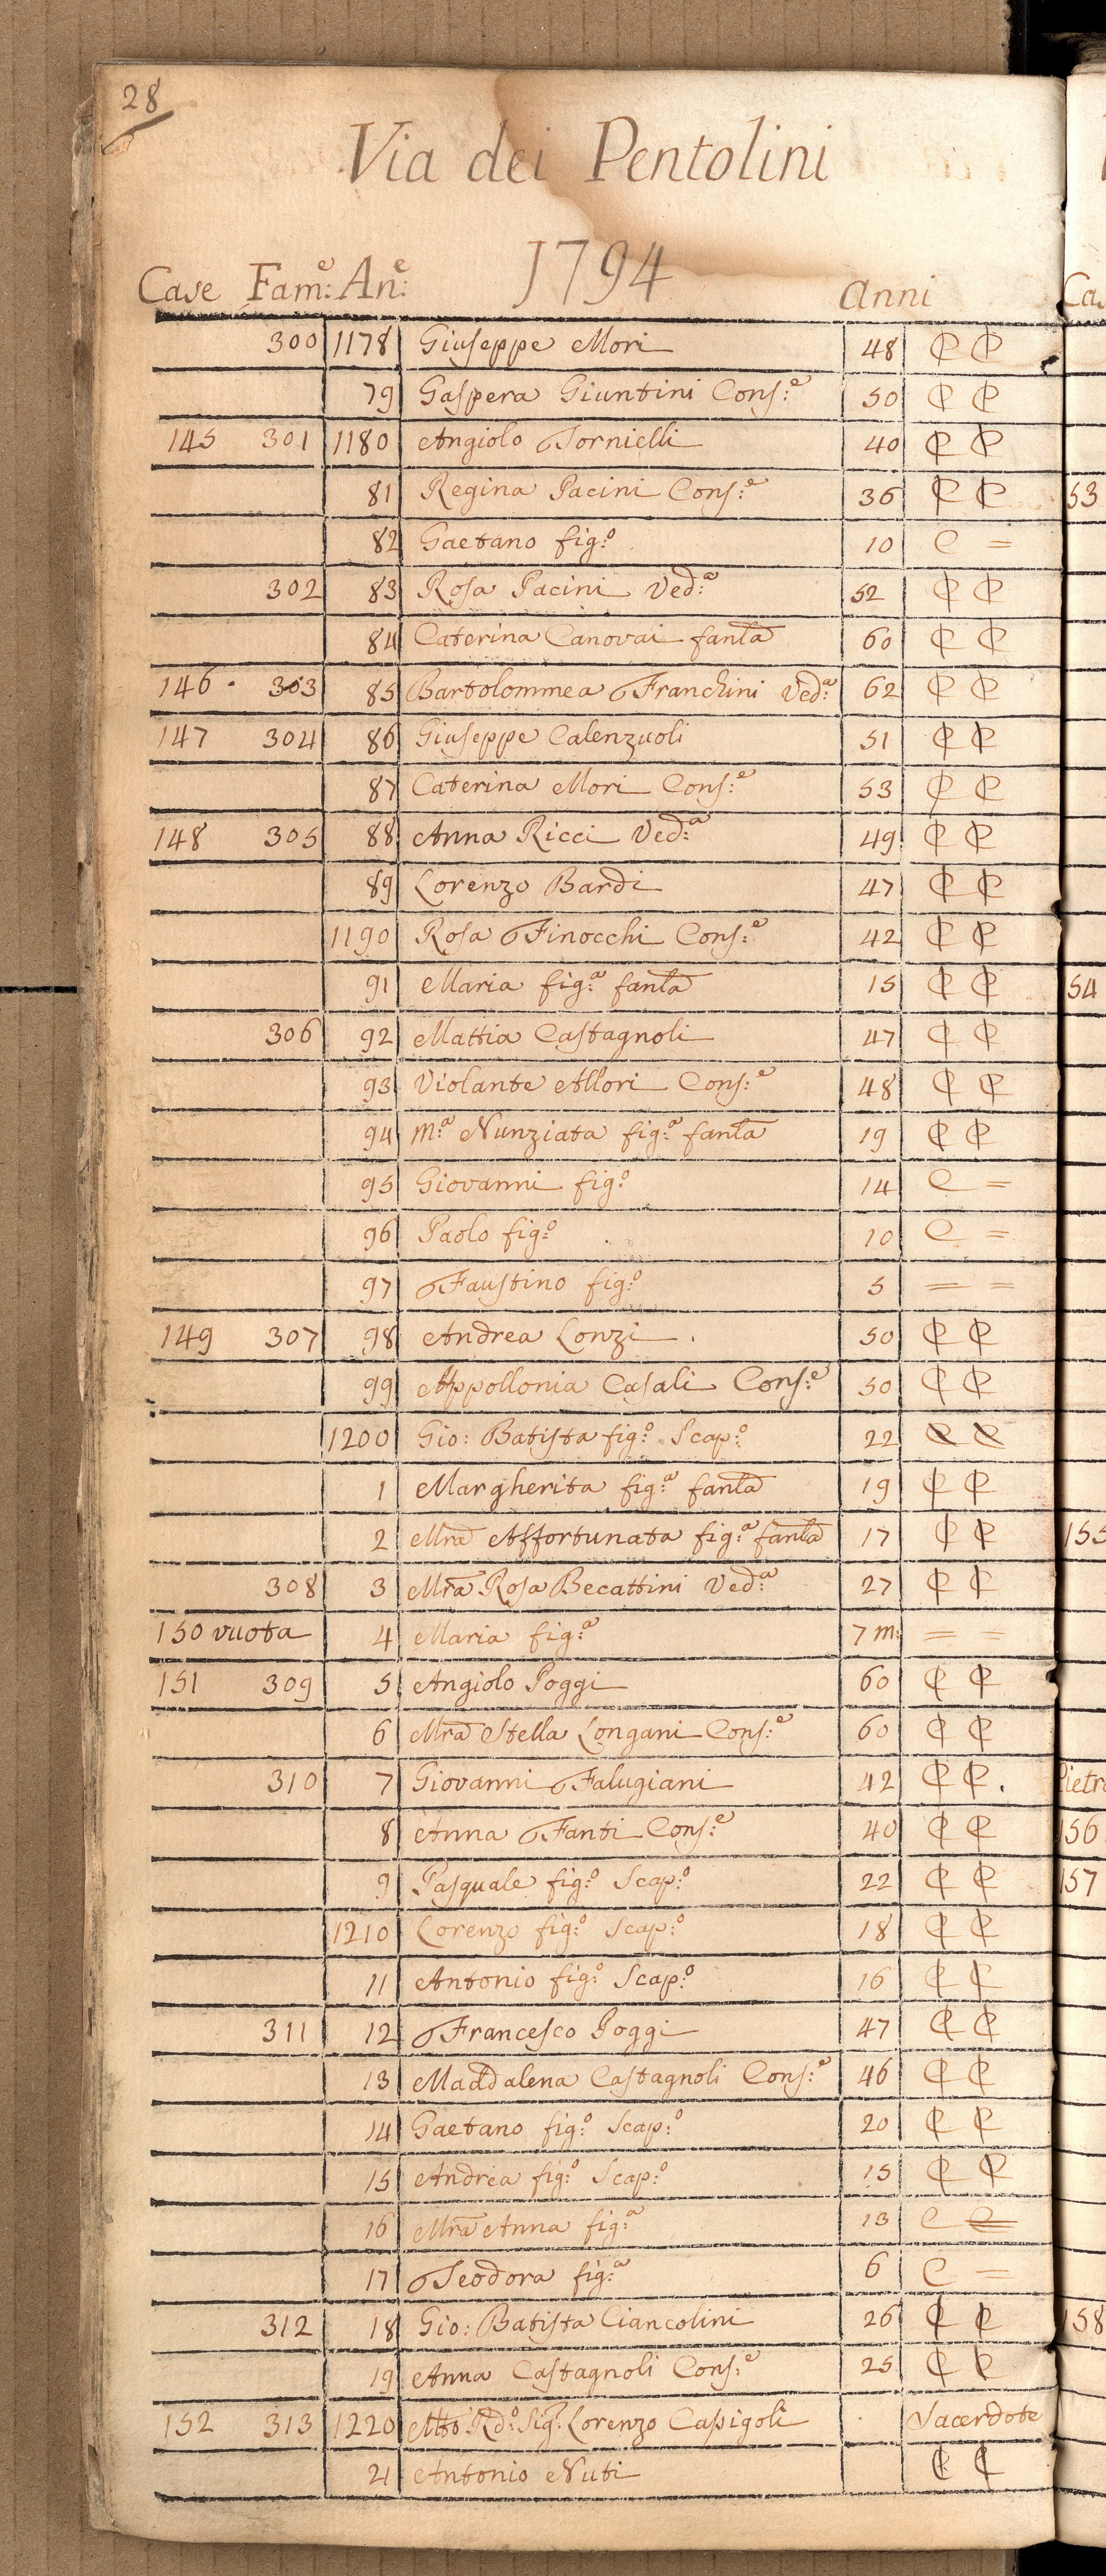 28
Via dei Pentolini
1794
Case Fam:e An:e anni
300 1178 Giuseppe Mori 48 C C
79 Gaspera Giuntini Cons:e 50 C C
145 301 1180 Angiolo Tornielli 40 C C
81 Regina Pacini Cons:e 36 C C
82 Gaetano fig:o 10 C =
302 83 Rosa Pacini Ved:a 52 C C
84 Caterina Canovai fanla 60 C C
146 303 85 Bartolommea Franchini Ved:a 62 C C
147 304 86 Giuseppe Calenzuoli 51 C C
87 Caterina Mori Cons:e 53 C C
148 305 88 Anna Ricci Ved:a 49 C C
89 Lorenzo Bardi 47 C C
1190 Rosa Finocchi Cons:e 42 C C
91 Maria fig:a fanla 15 C C
306 92 Mattia Castagnoli 47 C C
93 Violante Allori Cons:e 48 C C
94 M:a Nunziata fig:a fanla 19 C C
95 Giovanni fig:o 14 C =
96 Paolo fig:o 10 C =
97 Faustino fig:o 5 = =
149 307 98 Andrea Lonzi 50 C C
99 Appollonia Casali Cons:e 50 C C
1200 Gio: Batista fig:o Scap:o 22 C C
1 Margherita fig:a fanla 19 C C
2 Mra Affortunata fig:a fanla 17 C C
308 3 Mra Rosa Becattini Ved:a 27 C C
150 vuota 4 Maria fig:a 7 m: = =
151 309 5 Angiolo Poggi 60 C C
6 Mra Stella Longani Cons:e 60 C C
310 7 Giovanni Falugiani 42 C C
8 Anna Fanti Cons:e 40 C C
9 Pasquale fig:o Scap:o 22 C C
1210 Lorenzo fig:o Scap:o 18 C C
11 Antonio fig:o Scap:o 16 C C
311 12 Francesco Poggi 47 C C
13 Maddalena Castagnoli Cons:e 46 C C
14 Gaetano fig:o Scap:o 20 C C
15 Andrea fig:o Scap:o 15 C C
16 Mra Anna fig:a 13 C =
17 Teodora fig:a 6 C =
312 18 Gio: Batista Ciancolini 26 C C
19 Anna Castagnoli Cons:e 25 C C
152 313 1220 Mto Rd:o Sig:r Lorenzo Capigoli Sacerdote
21 Antonio Nuti C C
53
54
155
156
157
158